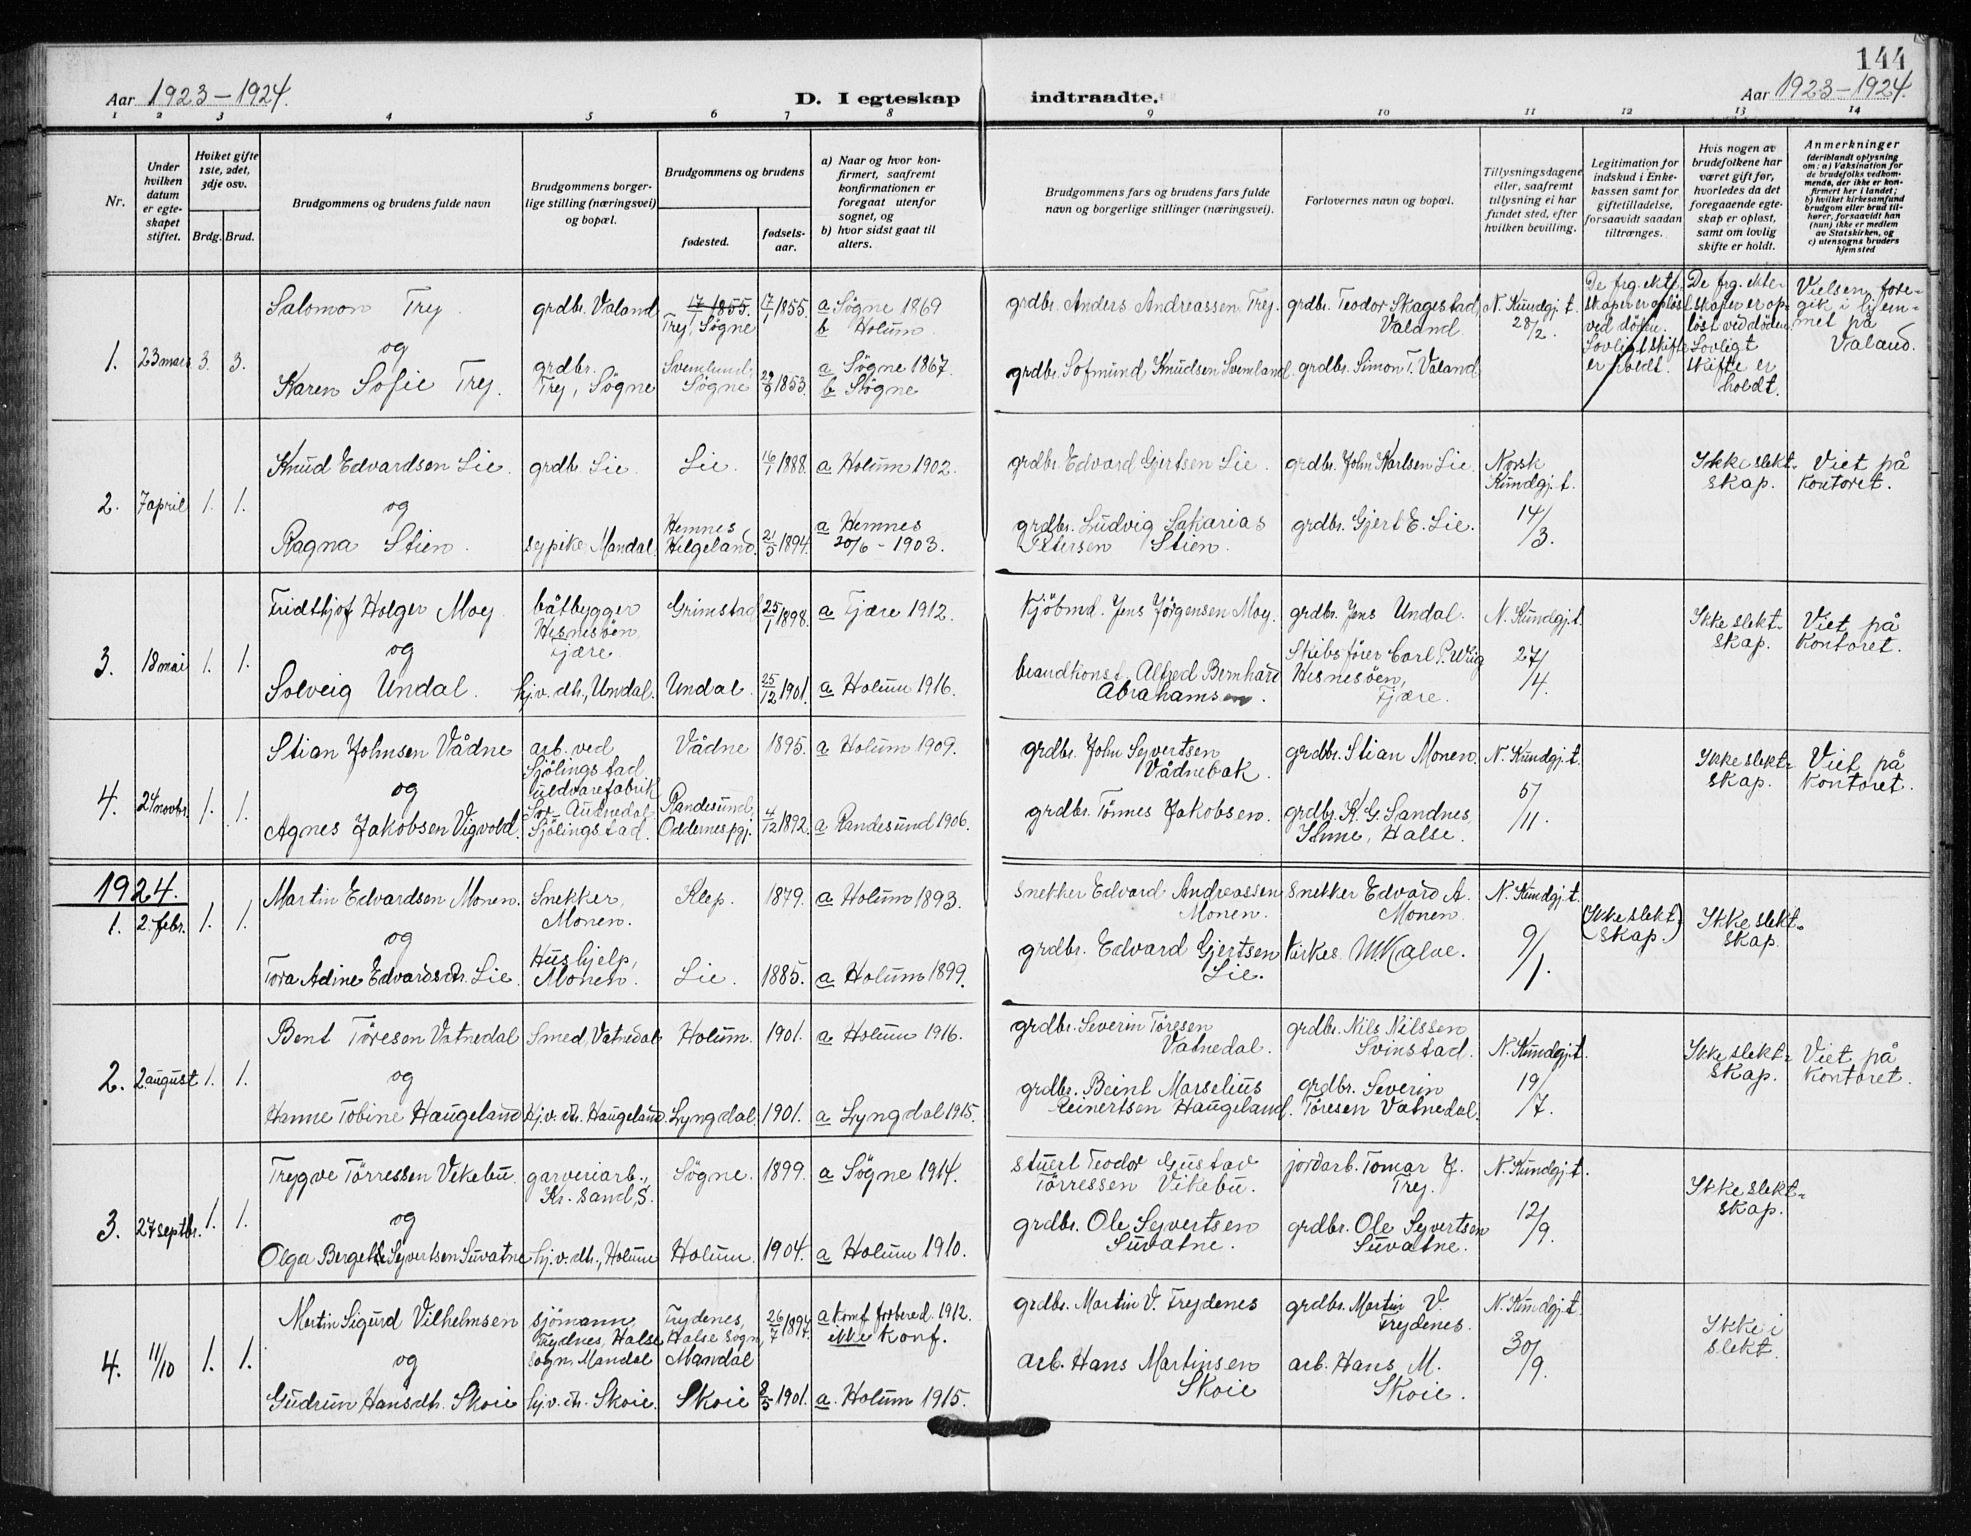 144
Aar 1923–1924.
D. I egteskap indtraadte.
Aar 1923–1924.
1 2 3 4 5 6 7 8 9 10 11 12 13 14
Nr.
Under hvilken datum er egteskapet stiftet.
Hviket gifte 1ste, 2det, 3dje osv.
Brdg. Brud.
Brudgommens og brudens fulde navn
Brudgommens borgerlige stilling (næringsvei) og bopæl.
Brudgommens og brudens
fødested.
fødselsaar.
a) Naar og hvor konfirmert, saafremt konfirmationen er foregaat utenfor sognet, og
b) hvor sidst gaat til alters.
Brudgommens fars og brudens fars fulde navn og borgerlige stillinger (næringsvei).
Forlovernes navn og bopæl.
Tillysningsdagene eller, saafremt tillysning ei har fundet sted, efter hvilken bevilling.
Legitimation for indskud i Enkekassen samt for giftetilladelse, forsaavidt saadan tiltrænges.
Hvis nogen av brudefolkene har været gift før, hvorledes da det foregaaende egteskap er opløst, samt om lovlig skifte er holdt.
Anmerkninger (deriblandt oplysning om: a) Vaksination for de brudefolks vedkommende, der ikke er konfirmert her i landet; b) hvilket kirkesamfund brudgom eller brud tilhører, forsaavidt han (hun) ikke er medlem av Statskirken, og c) utensogns bruders hjemsted
1. 23 mars 3. 3.
Salomon Try
og
Karen Sofie Try.
grdbr. Valand
grdbr. Try, Søgne
17/1 1855.
Try, Søgne
17/1 1855.
a Søgne 1869
b Holum.
Svemlund, Søgne
29/9 1853.
a Søgne 1867.
b Søgne
grdbr. Anders Andreassen Try.
grdbr. Sofmund Knudsen Svemland.
grdbr. Teodor Skagestad, Valand.
grdbr. Simon T. Valand
N. Kundgj.t. 28/2.
De frg. ekteskaper er opløst ved døden. Lovligt skifte er holdt.
De frg. ekteskaper er opløst ved døden, Lovligt skifte er holdt.
Vielsen foregik i hjemmet på Valand.
2. 7 april 1. 1.
Knud Edvardsen Lie.
og
Ragna Stien.
grdbr. Lie.
sypike, Mandal.
Lie.
16/1 1888.
a Holum 1902.
Hemnes Helgeland.
21/5 1894.
a Hemnes 20/6 – 1903.
grdbr. Edvard Gjertsen Lie.
grdbr. Ludvig Sakarias Petersen Stien.
grdbr. John Karlsen Lie.
grdbr. Gjert E. Lie.
Norsk Kundgj.t. 14/3.
Ikke slektskap.
Viet på kontoret.
3. 18 mai 1. 1.
Fridthjof Holger Moy.
og
Solveig Undal.
båtbygger Hisnesöen Fjære.
hjv. dt., Undal.
Grimstad
25/1 1898.
a Fjære 1912.
Undal.
25/12 1901.
a Holum 1916.
Kjöbmd. Jens Jörgensen Moy.
brandkonst. Alfred Bernhard Abrahamsen.
grdbr. Jens Undal.
Skibsfører Carl P. Wiig Hisnesöen, Fjære.
N. Kundgj.t. 27/4.
Ikke slektskap.
Viet på kontoret.
4. 24 novbr. 1. 1.
Stian Johnsen Vådne
og
Agnes Jakobsen Vigvold.
arb. ved Sjölingstad uldvarefabrik Sör Audnedal
Sjölingstad.
Vådne
1895.
a Holum 1909.
Randesund, Oddernes pgj.
4/12 1892.
a Randesund 1906.
grdbr. John Syvertsen Vådnebak.
grdbr. Tönnes Jakobsen.
grdbr. Stian Monen.
grdbr. K. G. Sandnes, Ihme, Halse.
N. Kundgj.t. 5/11.
Ikke slektskap.
Viet på kontoret.
1924.
1. 2 febr. 1. 1.
Martin Edvardsen Monen.
og
Tora Adine Edvardsdt. Lie.
Snekker, Monen.
Hushjelp, Monen.
Klep.
1879.
a Holum 1893.
Lie.
1885.
a Holum 1899.
snekker Edvard Andreassen Monen.
grdbr. Edvard Gjertsen Lie.
Snekker Edvard A. Monen.
Kirkes. M. Kalve.
N. Kundgj.t. 9/1.
(Ikke slektskap.)
Ikke slektskap.
2. 2 august 1. 1.
Bent Töresen Vatnedal
og
Hanne Tobine Haugeland
Smed, Vatnedal
hj.v. dt. Haugeland
Holum.
1901.
a Holum 1916.
Lyngdal.
1901.
a Lyngdal 1915.
grdbr. Severin Töresen Vatnedal.
grdbr. Beint Marselius Reinertsen Haugeland.
grdbr. Nils Nilssen Svinstad.
grdbr. Severin Töresen Vatnedal.
N. Kundgj.t. 19/7.
Ikke slektskap.
Viet på kontoret.
3. 27 septbr. 1. 1.
Trygve Törressen Vikebu.
og
Olga Bergette Syvertsen Suvatne
garveriarb., Kr. sand S.
hj.v. dt., Holum
Søgne.
1899.
a Søgne 1914.
Holum.
1904.
a Holum 1910.
stuert Teodor Gustav Törressen Vikebu.
grdbr. Ole Syvertsen Suvatne.
jordarb. Tomar J. Try.
grdbr. Ole Syvertsen Suvatne.
N. Kundgj.t. 12/9.
Ikke slektskap.
4. 11/10 1. 1.
Martin Sigurd Vilhelmsen
og
Gudrun Hansdt. Skoie
sjömann, Trydnes, Halse sogn, Mandal
hj.v. dt. Skoie.
Trydenes, Halse sogn, Mandal
26/7 1897.
a Konf. forbered. 1912. ikke konf.
Skoie
8/5 1901.
a. Holum 1915.
grdbr. Martin V. Trydenes
arb. Hans Martinsen Skoie
grdbr. Martin V. Trydenes.
arb. Hans M. Skoie.
N. Kundgj.t. 30/9.
Ikke i slekt.